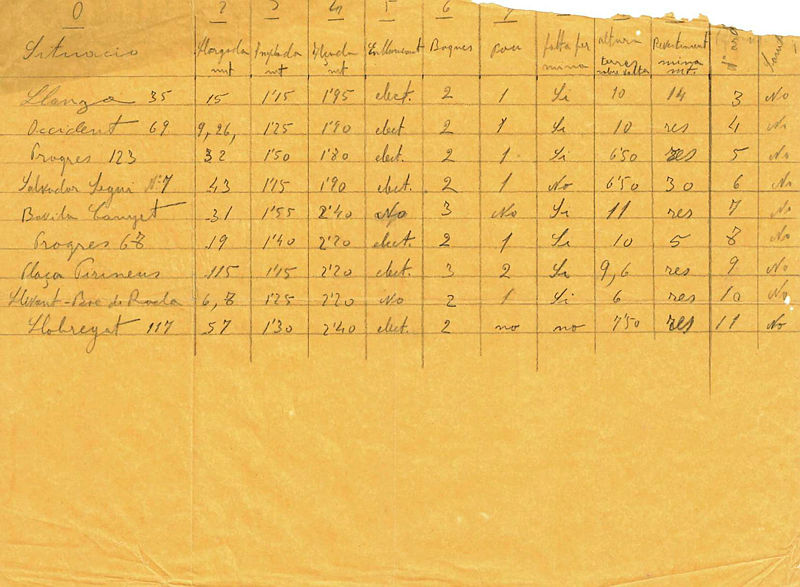 0 2 3 4 5 6 7
Situacio Llargada mt Amplada mt Alçada mt Enllumenat Boques Pou falta per mina altura terres sobre volta Revestiment mina mt. Nº
Llanza 35 15 1'15 1'95 elect. 2 1 Si 10 14 3 No
Occident 69 9,26, 1'25 1'90 elect 2 1 Si 10 res 4 No
Progres 123 32 1'50 1'80 elect. 2 1 Si 6'50 res 5 No
Salvador Segui Nº7 43 1'15 1'90 elect. 2 1 No 6'50 30 6 No
Baxida Canyet 31 1'55 2'40 No 3 No Si 11 res 7 No
Progres 68 19 1'40 2'20 elect. 2 1 Si 10 5 8 No
Plaça Pirineus 115 1'15 2'20 elect. 3 2 Si 9,6 res 9 No
Llevant-Pere de Roda 6,8 1'25 2'20 No 2 1 Si 6 res 10 No
Llobregat 117 57 1'30 2'40 elect. 2 no no 7'50 res 11 No